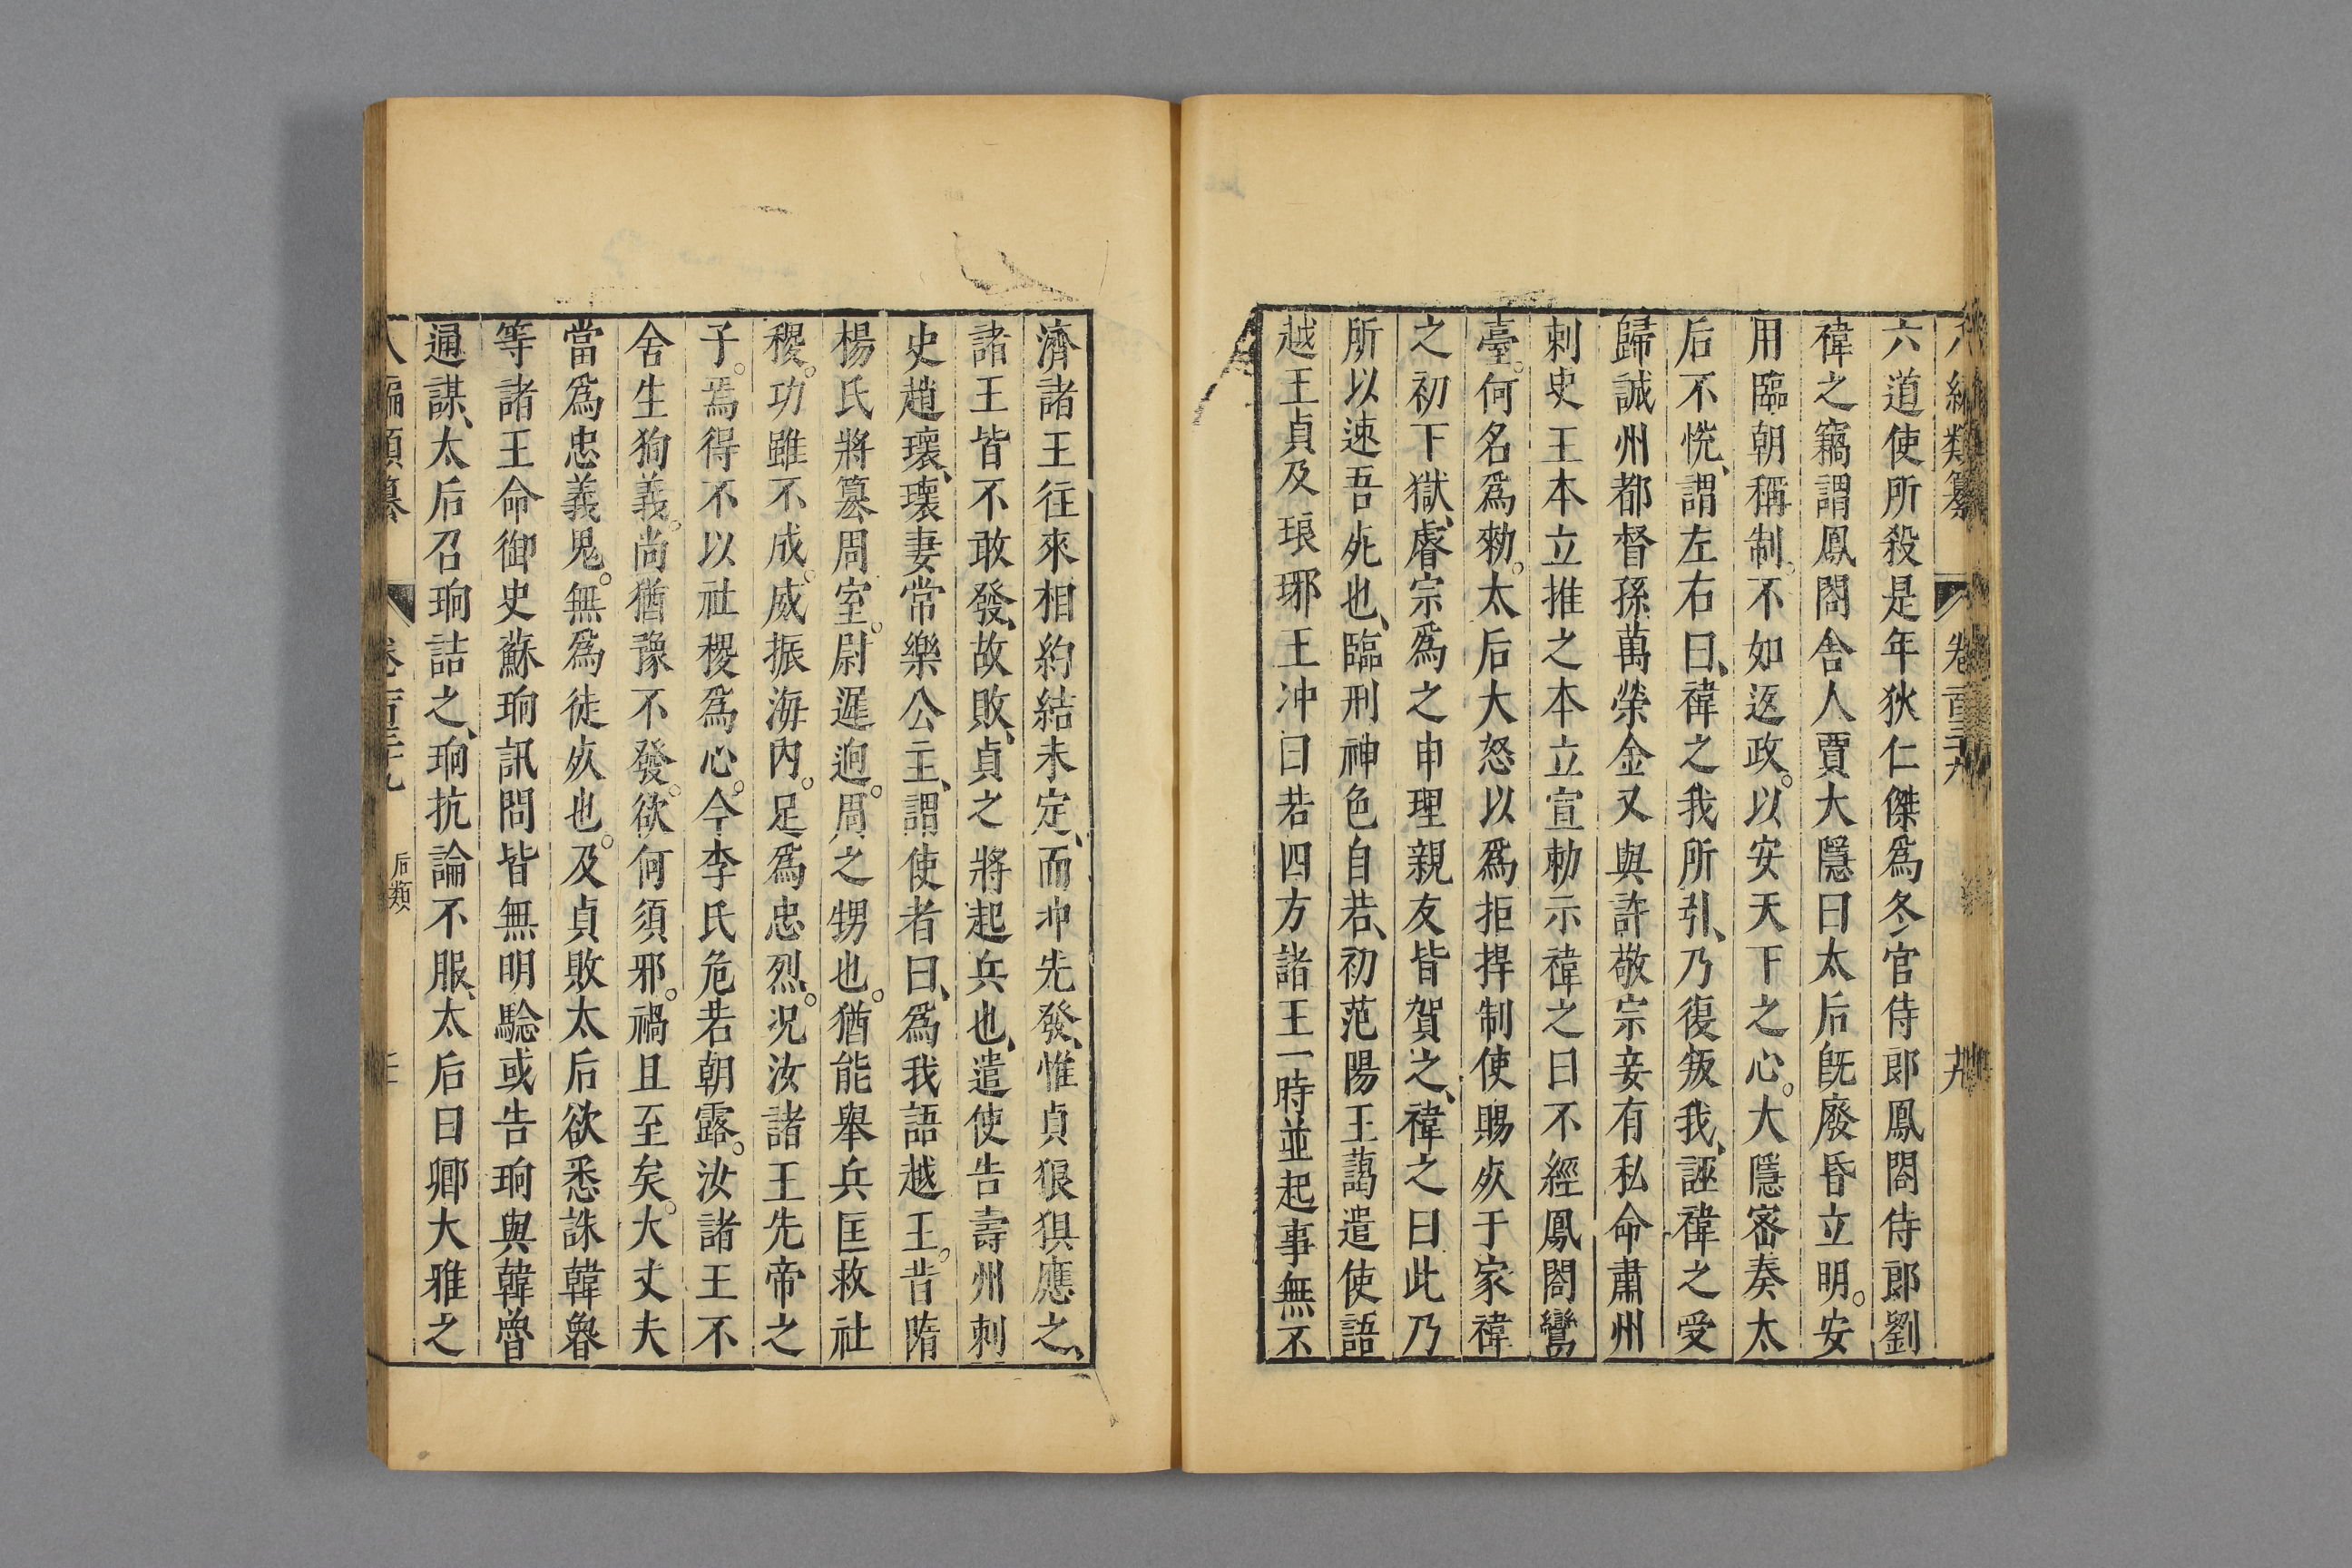 八編類纂 卷一百三十九 十九
六道使所殺是年狄仁傑爲冬官侍郎鳳閣侍郎劉
禕之竊謂鳳閣舍人賈大隱曰太后旣廢昏立明。安
用臨朝稱制。不如返政。以安天下之心。大隱密奏太
后不恱、謂左右曰、禕之我所引、乃復叛我、誣禕之受
歸誠州都督孫萬榮金又與許敬宗妾有私命肅州
刺史王本立推之本立宣勅示禕之曰不經鳳閣鸞
臺。何名爲勑。太后大怒以爲拒捍制使賜死于家禕
之初下獄、睿宗爲之申理親友皆賀之、禕之曰此乃
所以速吾死也、臨刑神色自若、初范陽王藹遣使語
越王貞及琅琊王冲曰若四方諸王一時並起事無不
濟諸王往來相約結未定、而冲先發、惟貞狼狽應之、
諸王皆不敢發、故敗、貞之將起兵也、遣使告壽州刺
史趙瓌、瓌妻常樂公主、謂使者曰、爲我語越王。昔隋
楊氏將簒周室。尉遲迥。周之甥也。猶能舉兵匡救社
稷。功雖不成。威振海內。足爲忠烈。况汝諸王先帝之
子。焉得不以社稷爲心。今李氏危若朝露。汝諸王不
舍生狥義。尚猶豫不發。欲何須邪。禍且至矣。大丈夫
當爲忠義鬼。無爲徒死也。及貞敗太后欲悉誅韓魯
等諸王命御史蘇珦訊問皆無明驗或告珦與韓魯
通謀、太后召珦詰之、珦抗論不服、太后曰卿大雅之
八編類纂 卷一百三十九 后類 二十